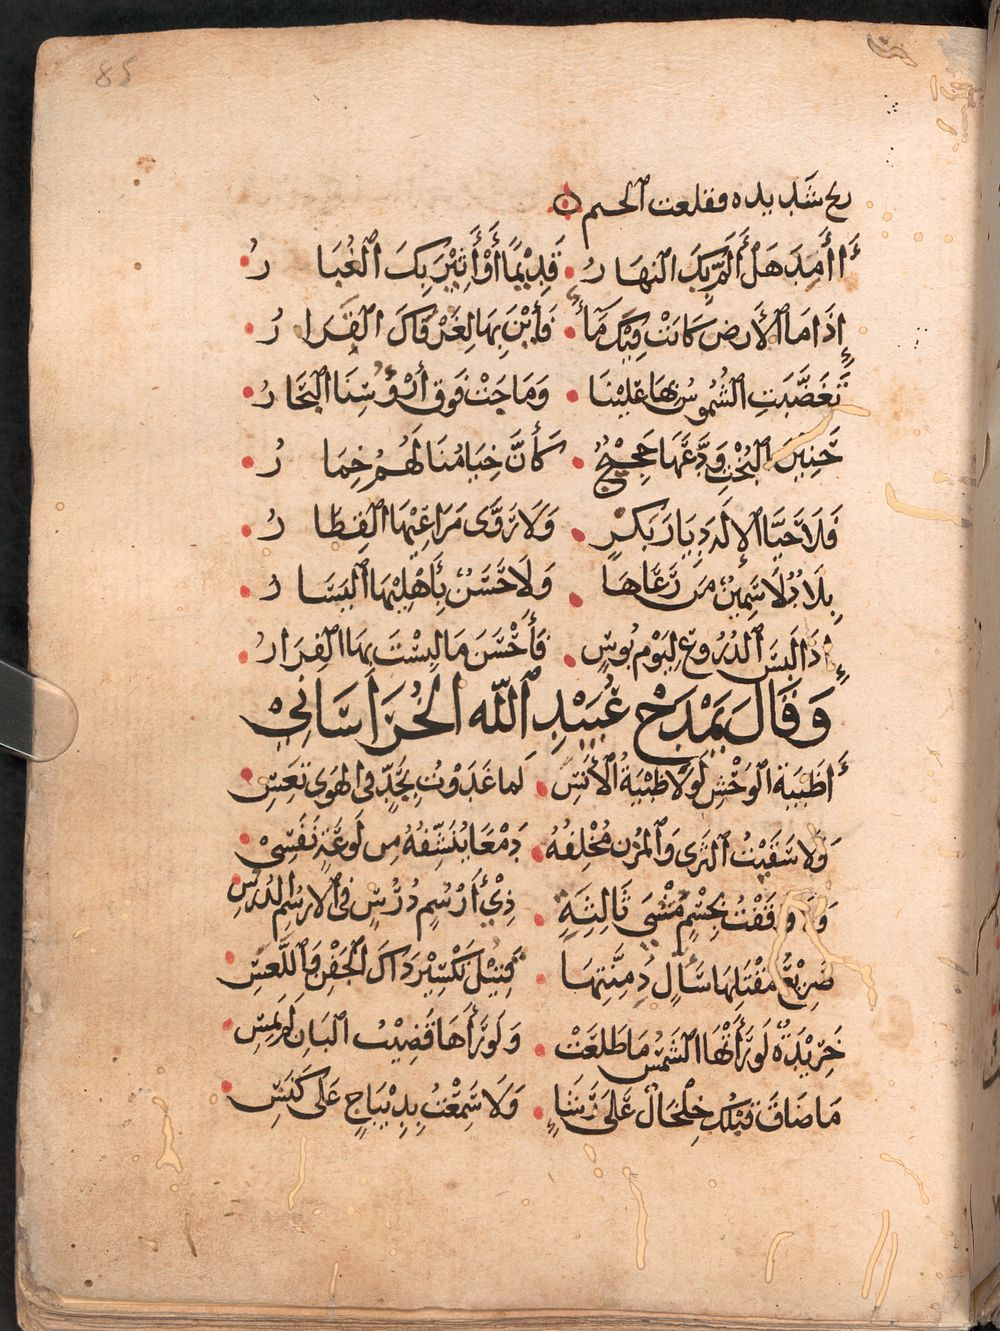 85
ريح شديده فقلعت الخيم
أَآمِدَ هَلْ أَلَمَّ بِكَ النهارُ • قَدِيْمًا أَوْ أُثِيْرَ بِكَ الْغُبَارُ
إِذَا مَا الْأَرض كَانَتْ فِيْكَ مَآءً • فَأَيْنَ بِهَا لِغَرْقَاكَ القَرَارُ
تَغَضَّبَتِ الشُّمُوسُ بِهَا عَلَيْنَا • وَمَاجَتْ فَوقَ أَرْؤُسِنَا الْبِحَارُ
حَنِيْنَ الْبُخْتِ وَدَّعَهَا حَجِيْجٌ • كَأَنَّ خِيَامُنَا لَهُمُ خِمَارُ
فَلَا حَيَّا الْإلَهُ دِيَارَ بَكْرٍ • وَلَا رَوَّى مَرَاعِيْهَا الْقِطَارُ
بِلَادٌ لَا سَمِيْنٌ مَن رَعَاهَا • وَلَا حَسَنٌ بِأَهْلِيْهَا الْيَسَارُ
إِذَا لُبِسَ الدُّرُوعُ لِيَوْمِ بُوسٍ • فَأَحْسَنَ مَا لَبِسْتَ بِهَا الْفِرَارُ
وَقَالَ يَمْدَحُ عُبَيْدِ اللّٰه الْخُرَاسَانِيْ
أَظَبْيَةَ الْوَحْشِ لَوْلَا ظَبْيَةُ الْأَنَسِ • لَما غَدَوْتُ بِجَدٍّ فى الهَوى تَعِسِ
وَلا سَقَيْتُ الثَّرى وَالمُزْن مُخْلِفُهُ • دَمْعًا يُنَشِّفُهُ مِن لَوعَةٍ نَفَسِيْ
وَلَا وَقَفْتُ بِجِسْمٍ مُسْيَ ثَالِثَةٍ • ذِيْ أَرْسُمٍ دُرُسٍ فى الارسُمِ الدُرسِ
صَرِيْعُ مُقْلَتِهَا سَآلِ دِمْنَتِهَا • قَتِيْلَ تَكْسِيْرَ ذاكَ الْجَفْنِ وَاللَّعَسِ
خَرِيْدَةٌ لَوْ رَأَتْهَا الشَمْسُ مَا طَلَعَتْ • وَلَو رَأَهَا قَضِيْبُ الْبَانِ لَمْ يَمِسِ
مَا ضَاقَ قَبْلَكِ خِلْخَالٌ عَلَى رَشَإٍ • وَلَا سَمِعْتُ بِدِيْبَاجٍ عَلَى كَنَسِ